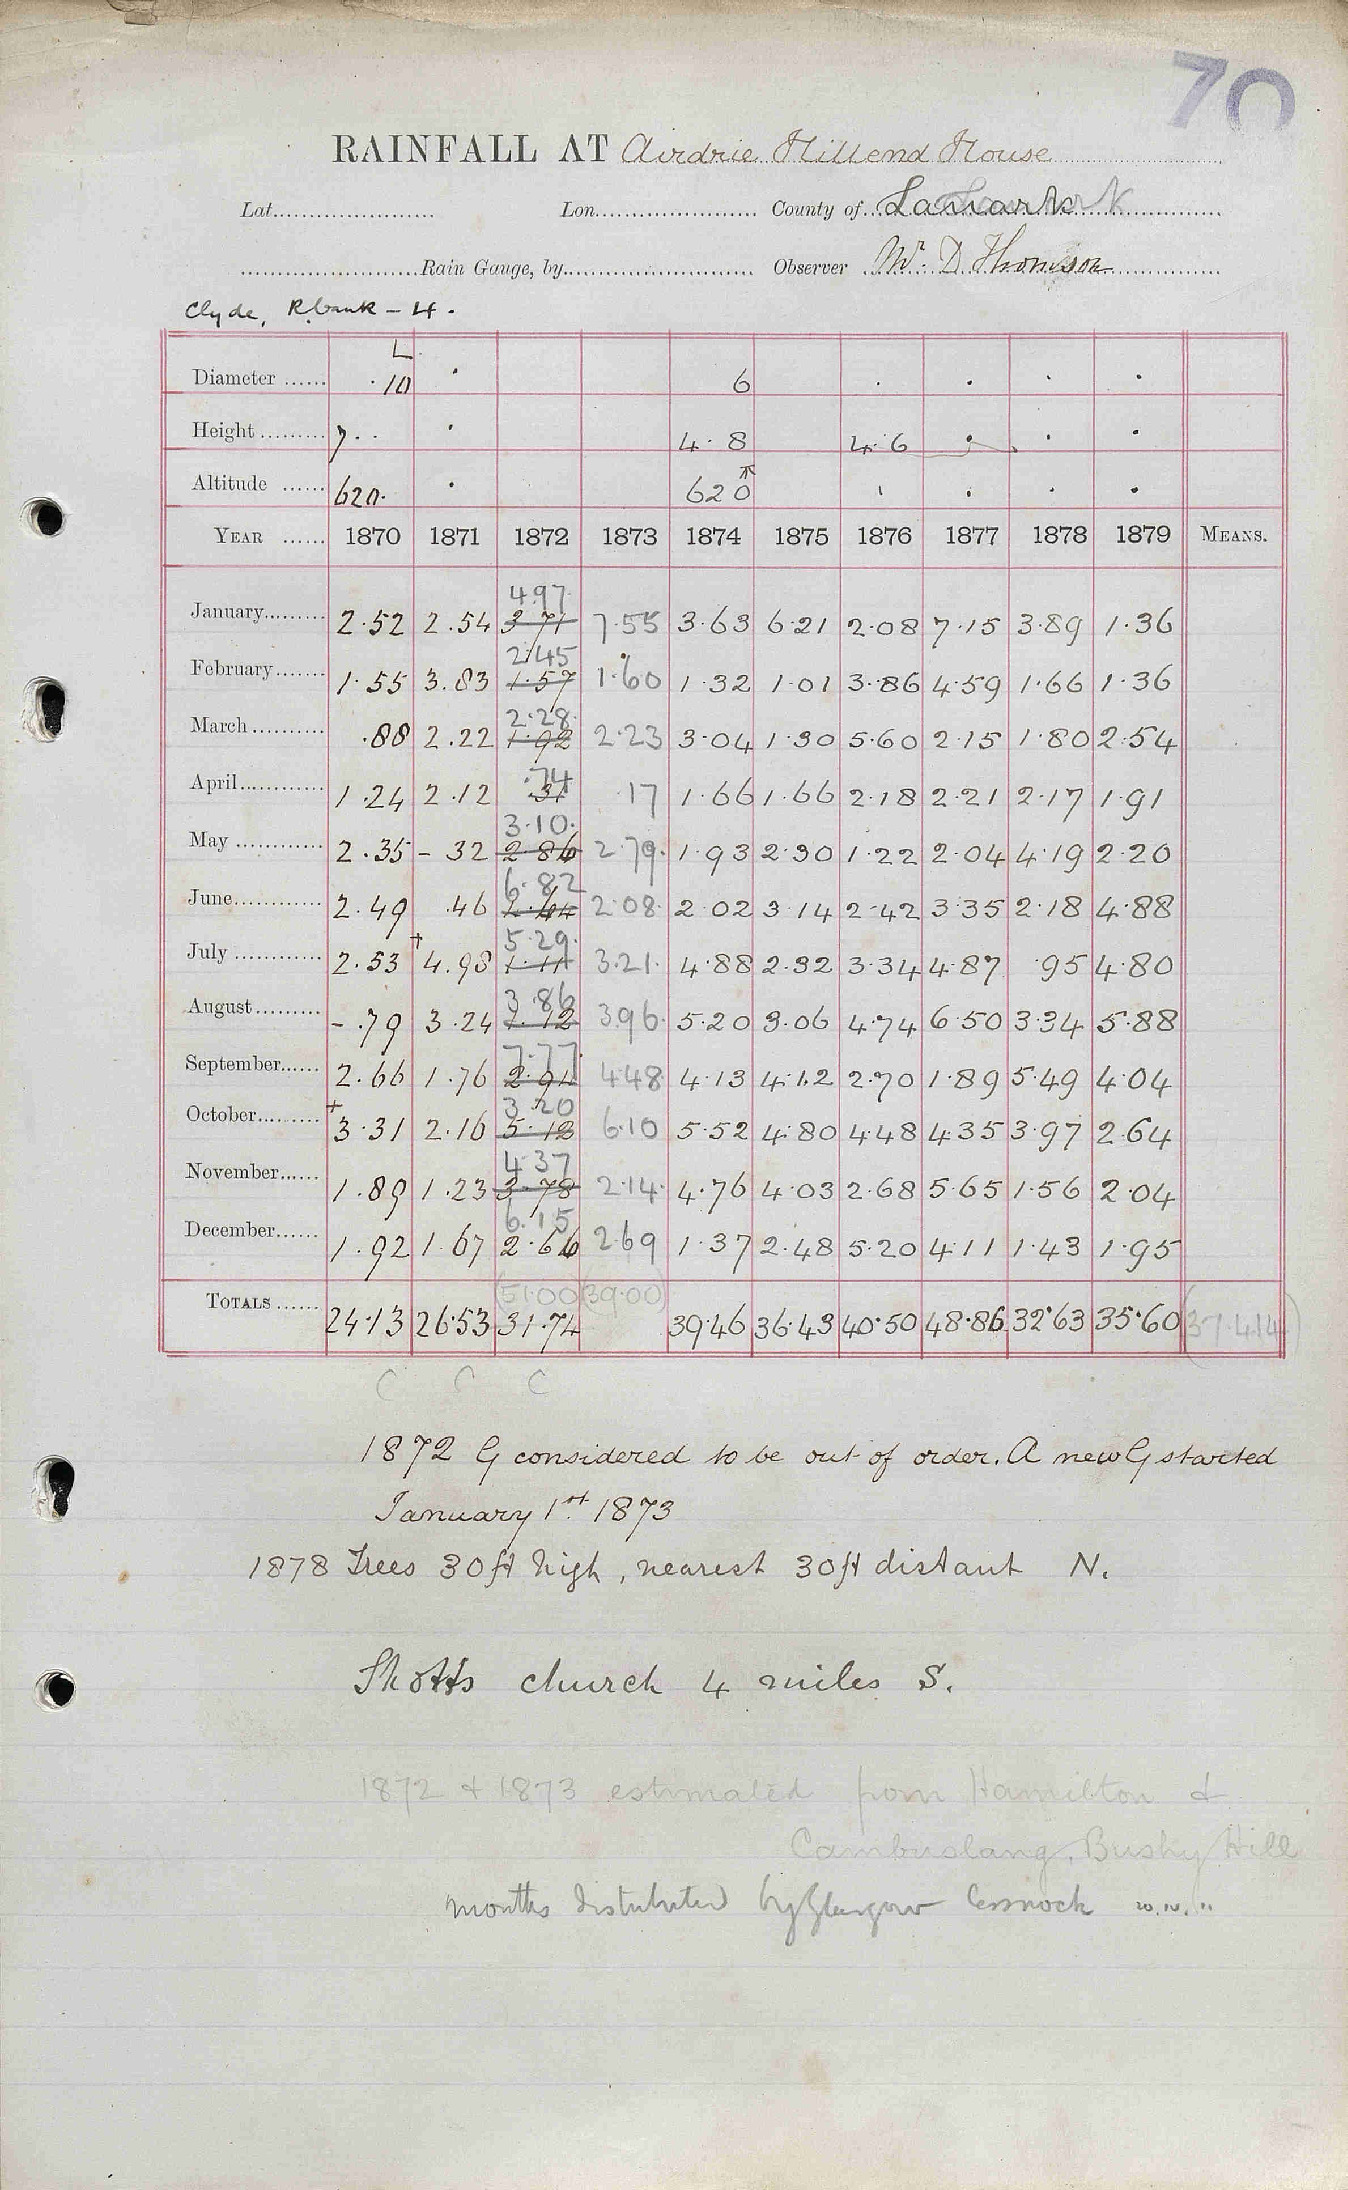 70
RAINFALL AT Airdrie Hillend House
Lat. Lon. County of Lanark
Rain Gauge, by Observer Mr. D Thomson
Clyde, R.bank - 4.
Diameter 10 L 6
Height 7. 4.8 4.6
Altitude 620. 620
YEAR 1870 1871 1872 1873 1874 1875 1876 1877 1878 1879 MEANS.
4.97
January 2.52 2.54 3.71 7.55 3.63 6.21 2.08 7.15 3.89 1.36
2.45
February 1.55 3.83 1.57 1.60 1.32 1.01 3.86 4.59 1.66 1.36
2.28
March .88 2.22 1.92 2.23 3.04 1.30 5.60 2.15 1.80 2.54
.74
April 1.24 2.12 .31 17 1.66 1.66 2.18 2.21 2.17 1.91
3.10
May 2.35 - 32 2.86 2.79 1.93 2.30 1.22 2.04 4.19 2.20
6.82
June 2.49 .46 2.64 2.08 2.02 3.14 2.42 3.35 2.18 4.88
5.29
July 2.53 4.98 1.11 3.21 4.88 2.32 3.34 4.87 .95 4.80
3.86
August - .79 3.24 2.12 3.96 5.20 3.06 4.74 6.50 3.34 5.88
7.77
September 2.66 1.76 2.91 4.48 4.13 4.12 2.70 1.89 5.49 4.04
3.20
October 3.31 2.16 5.18 6.10 5.52 4.80 4.48 4.35 3.97 2.64
4.37
November 1.89 1.23 3.78 2.14 4.76 4.03 2.68 5.65 1.56 2.04
6.15
December 1.92 1.67 2.66 2.69 1.37 2.48 5.20 4.11 1.43 1.95
(51.00) (39.00)
TOTALS 24.13 26.53 31.74 39.46 36.43 40.50 48.86 32.63 35.60 (37.414)
C C C
1872 G considered to be out of order. A new G started
January 1st 1873
1878 Trees 30ft high, nearest 30ft distant N.
Shotts church 4 miles S.
1872 & 1873 estimated from Hamilton &
Cambuslang, Bushy Hill
months distributed by Glasgow Cessnock